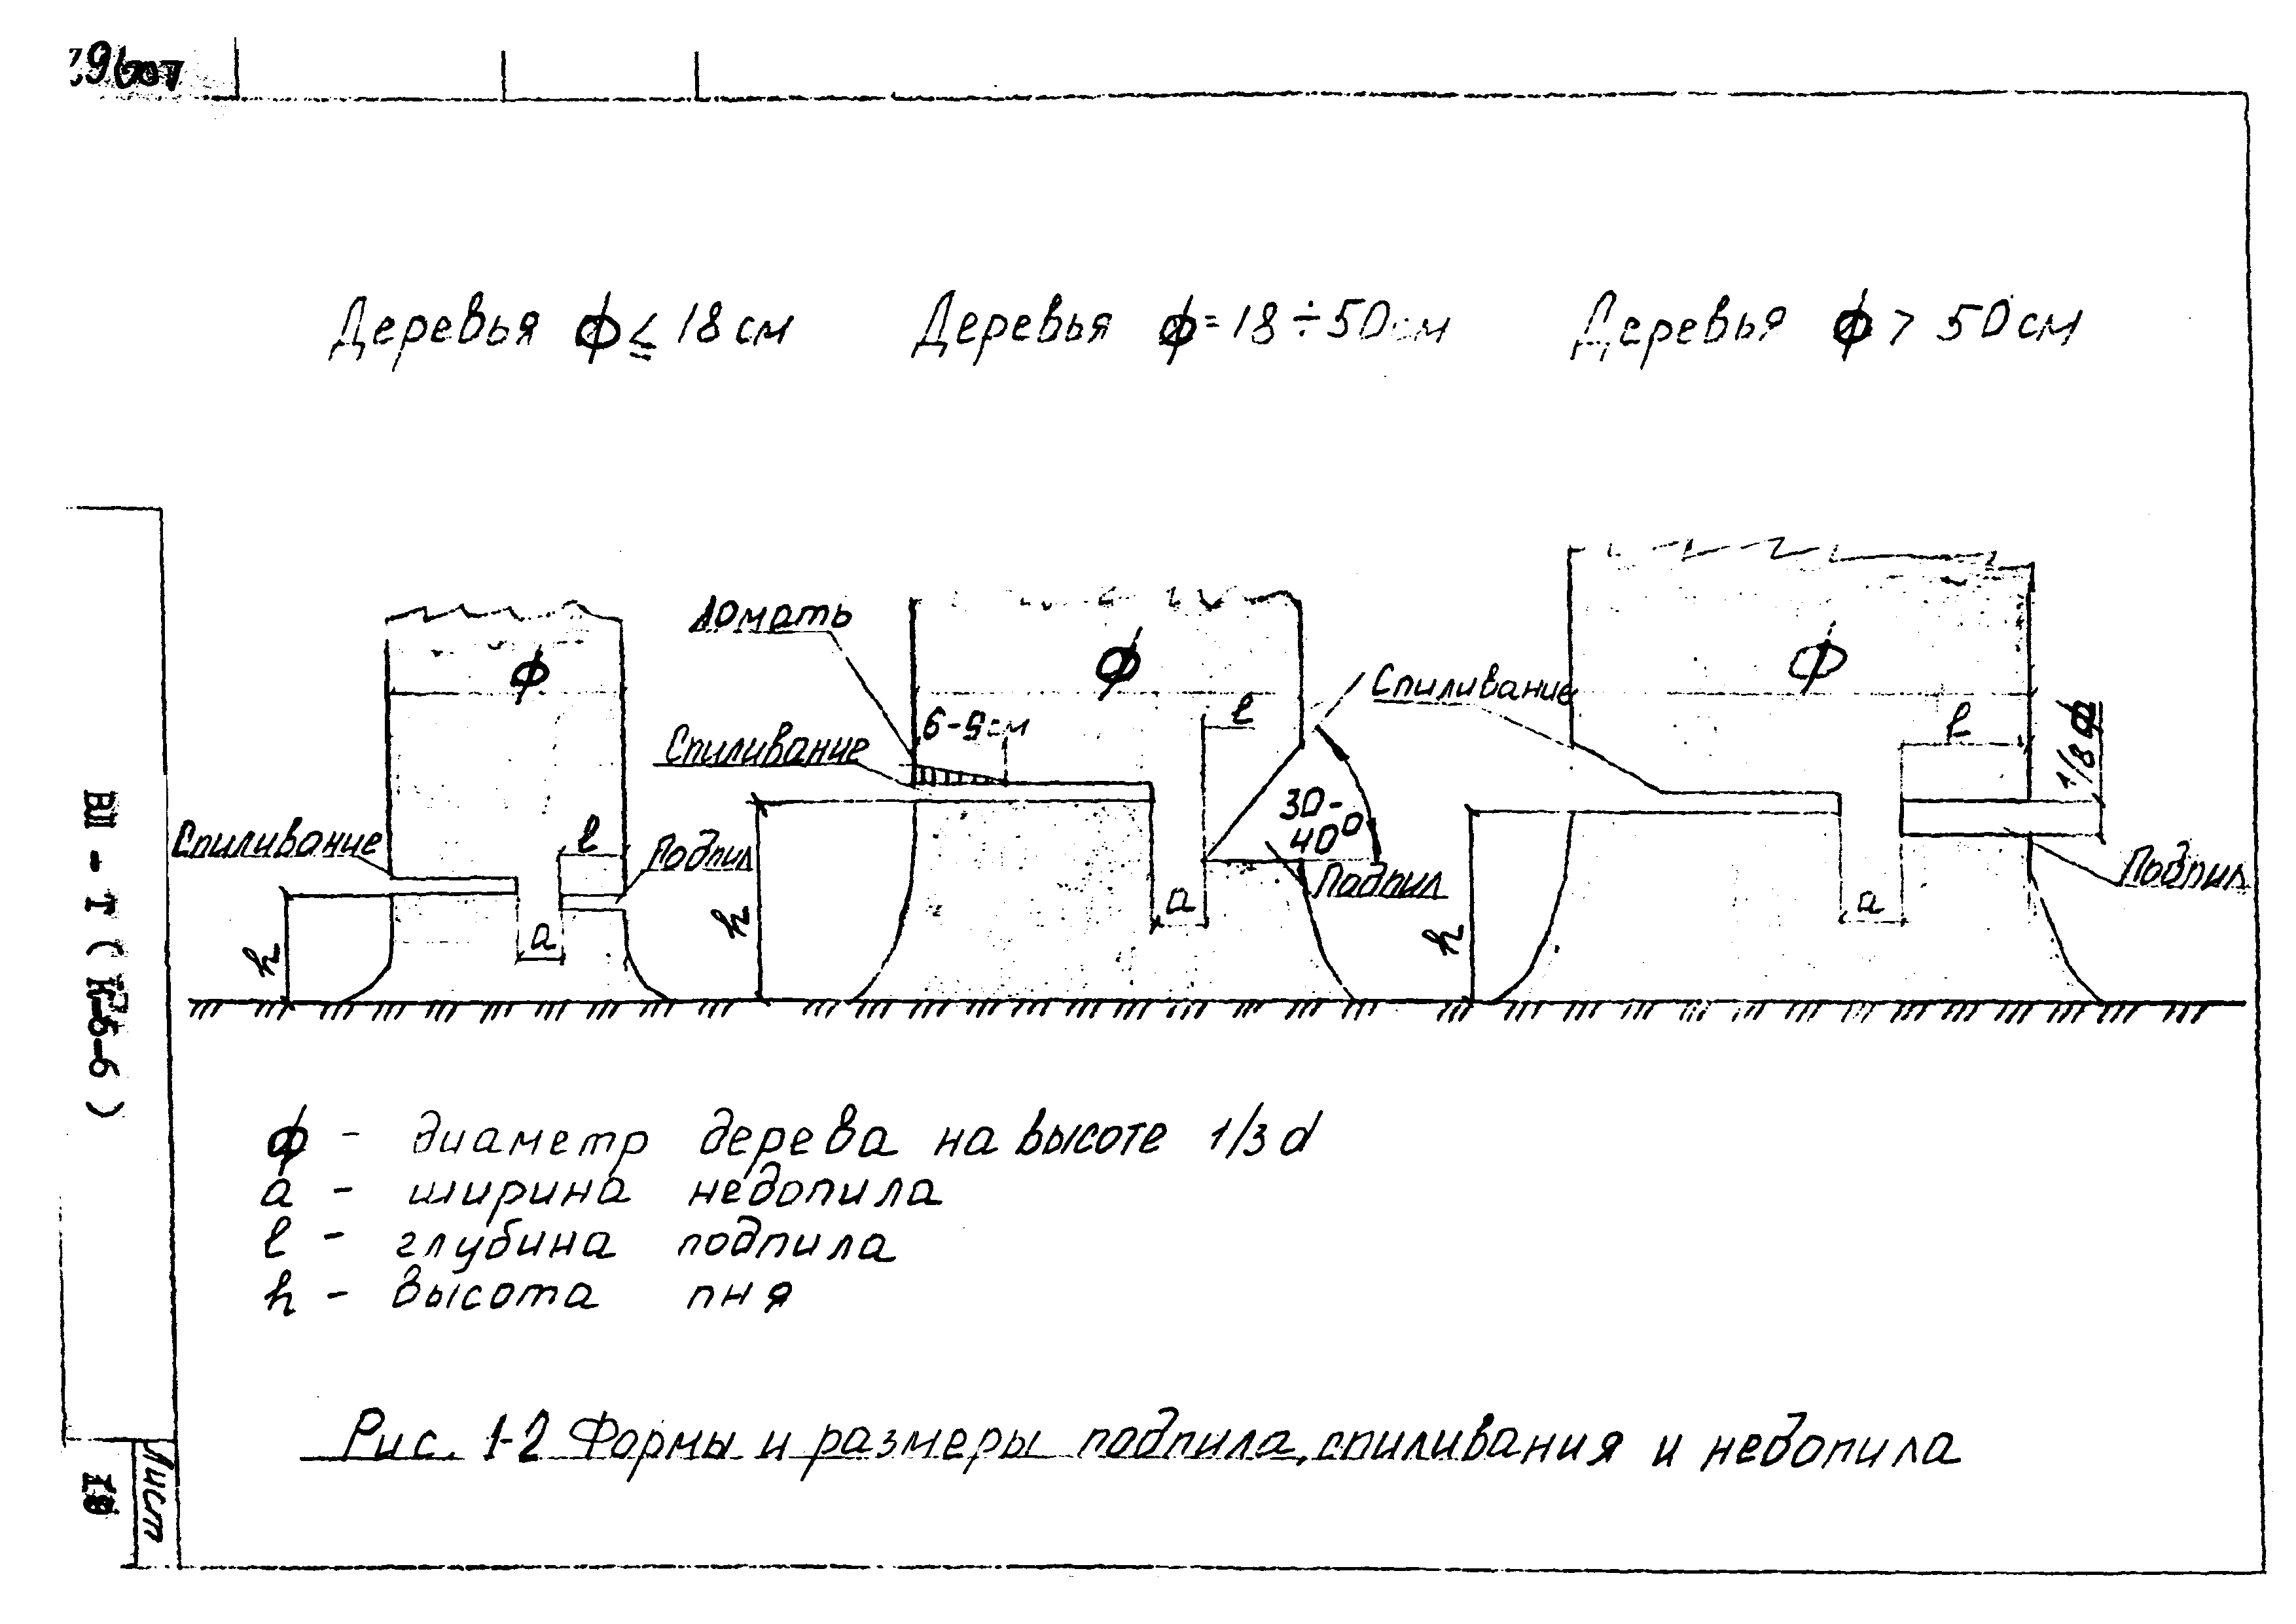 Деревья ф ≤ 18 см
Деревья ф = 18 ÷ 50 см
Деревья ф > 50 см
ф
Спиливание
l
Подпил
a
h
Ломать
ф
6-9см
Спиливание
l
30-
40°
Подпил
a
h
Спиливание
ф
l
1/8 ф
Подпил
a
h
ф - диаметр дерева на высоте 1/3 d
a - ширина недопила
l - глубина подпила
h - высота пня
Рис. 1-2 Формы и размеры подпила, спиливания и недопила
ВШ - Т (К-5-6)
Лист